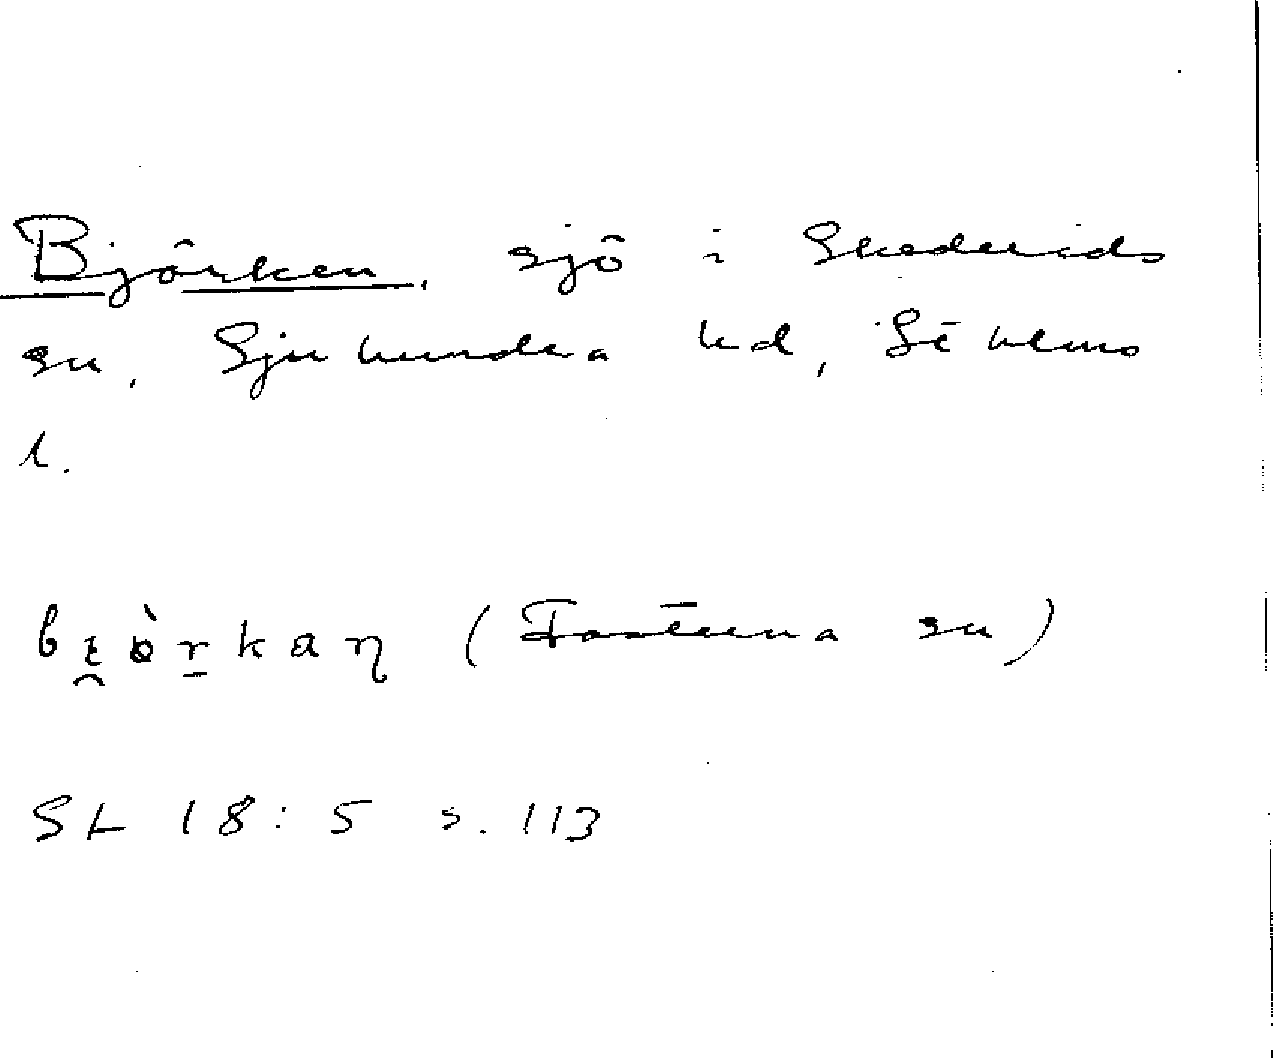 Björken, sjö i Skederids
sn, Sjuhundra hd, Sthlms
l.
bi̯ò̱rkan (Fasterna sn)
SL 18:5 s. 113